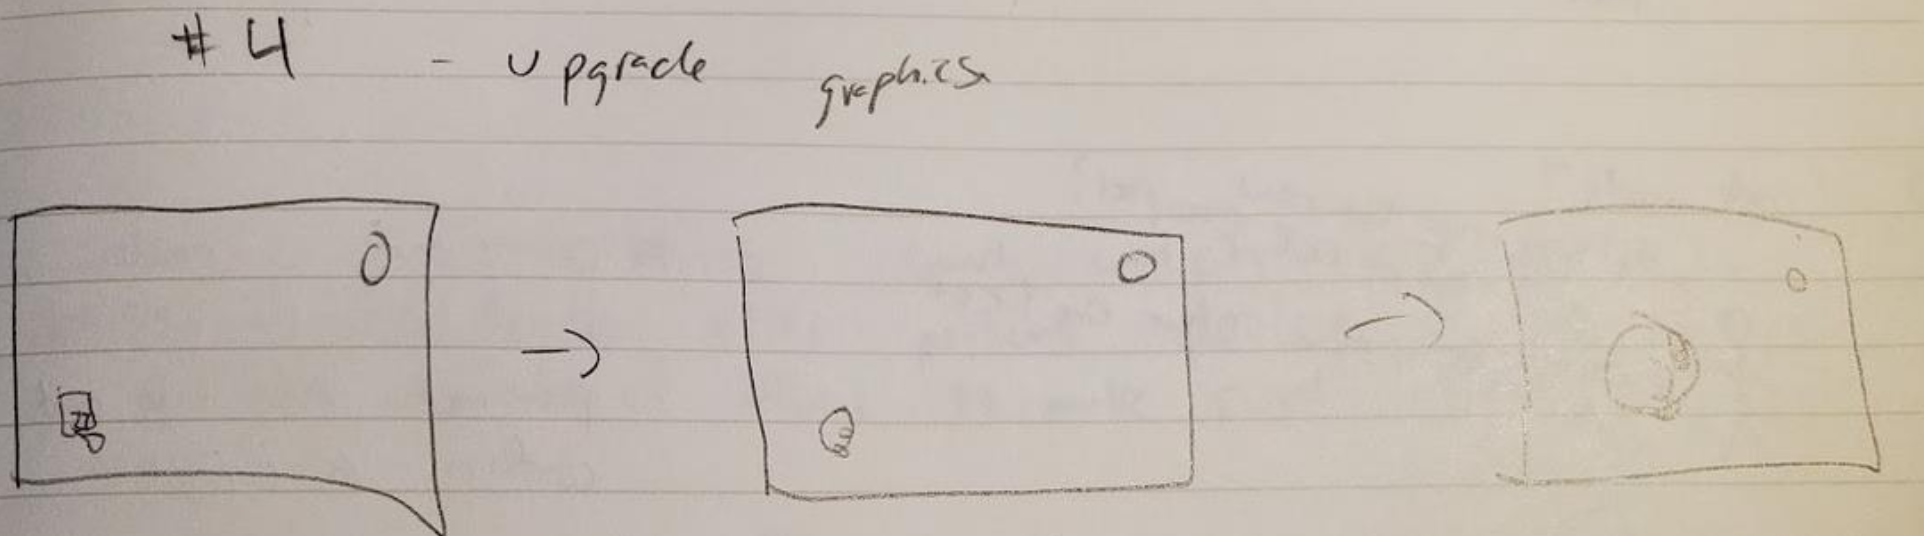 #4 - upgrade graphics